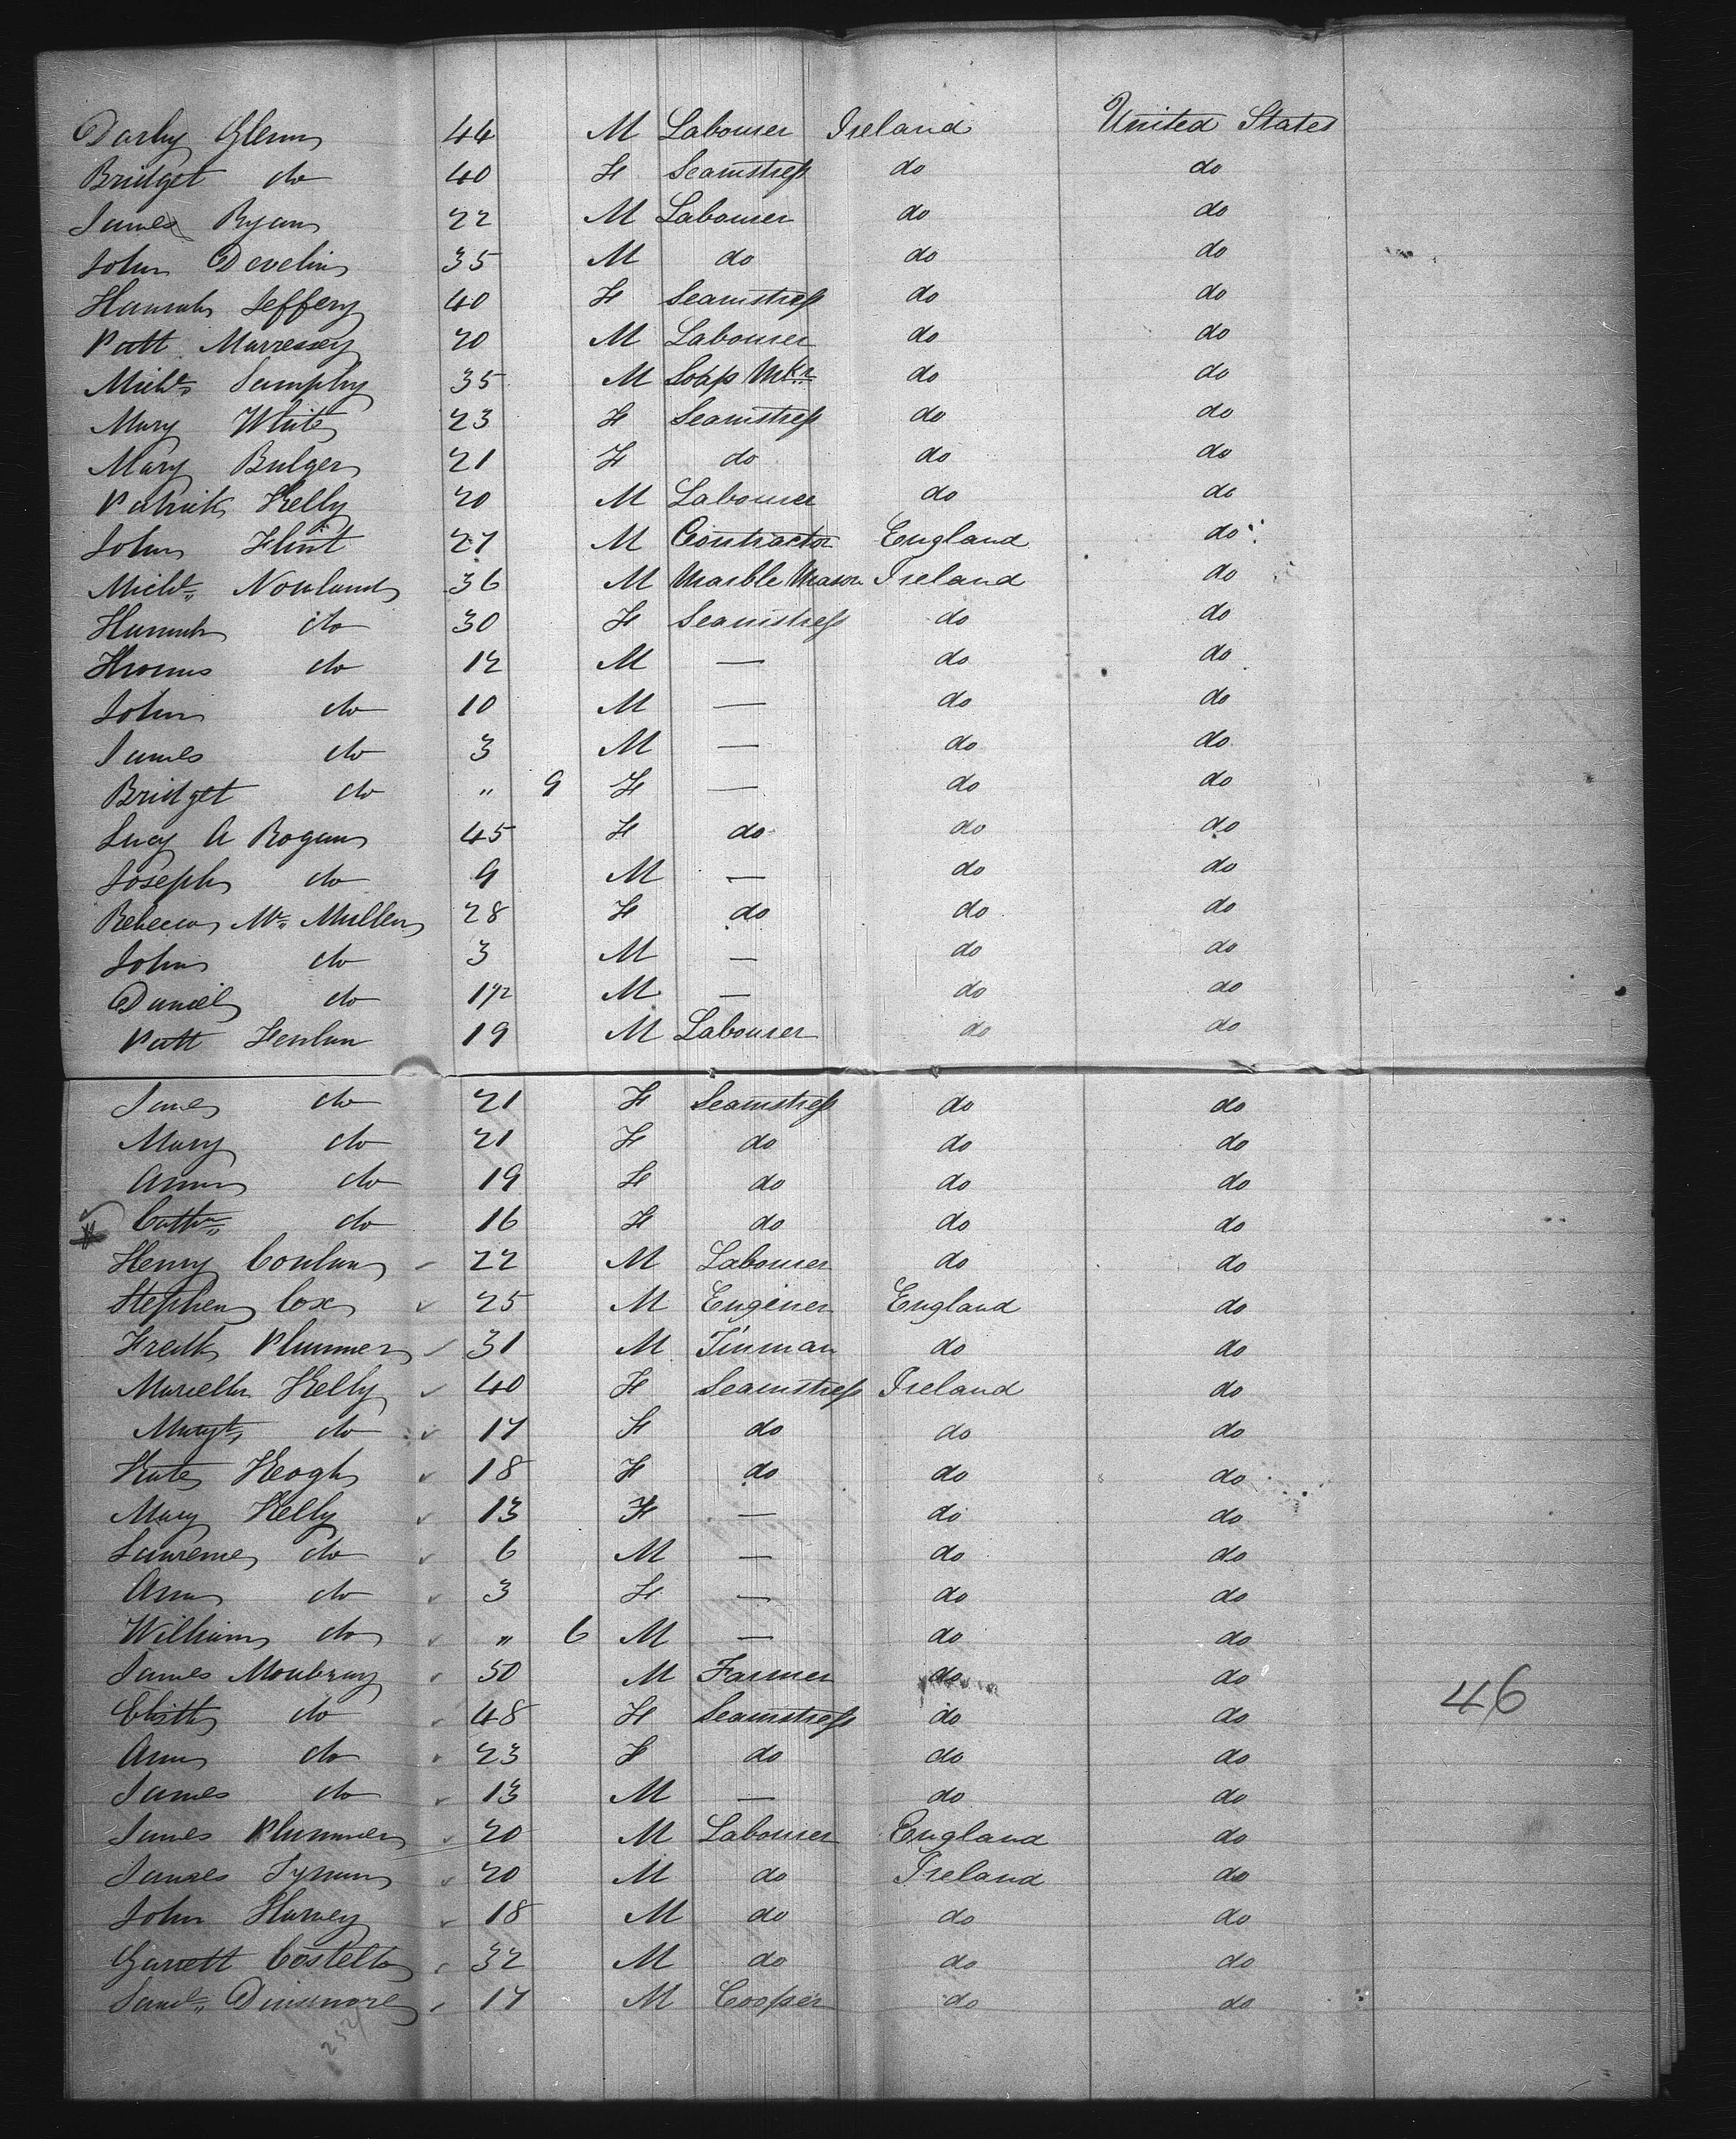 Darby Glenn 44 M Labourer Ireland United States
Bridget do 40 F Seamstress do do
James Ryan 22 M Labourer do do
John Develin 35 M do do do
Hannah Jeffery 40 F Seamstress do do
Patt Marressey 20 M Labourer do do
Michl. Samphy 35 M Soap Mkr do do
Mary White 23 F Seamstress do do
Mary Bulger 21 F do do do
Patrick Kelly 20 M Labourer do do
John Flint 27 M Contractor England do
Michl. Nowland 36 M Marble Mason Ireland do
Hannah do 30 F Seamstress do do
Thomas do 12 M — do do
John do 10 M — do do
James do 3 M — do do
Bridget do " 9 F — do do
Lucy A Rogan 45 F do do do
Joseph do 9 M — do do
Rebecca Mc. Mullen 28 F do do do
John do 3 M — do do
Daniel do 1/2 M — do do
Patt Henlan 19 M Labourer do do
Jane do 21 F Seamstress do do
Mary do 21 F do do do
Ann do 19 F do do do
Cathn. do 16 F do do do
Henry Conlan 22 M Labourer do do
Stephen Cox 25 M Enginer England do
Fredk Plummer 31 M Tinman do do
Mariella Kelly 40 F Seamstress Ireland do
Margt do 17 F do do do
Kate Keogh 18 F do do do
Mary Kelly 13 F — do do
Laurence do 6 M — do do
Ann do 3 F — do do
William do " 6 M — do do
James Moubray 50 M Farmer do do
Elisth do 48 F Seamstress do do 46
Ann do 23 F do do do
James do 13 M — do do
James Plummer 20 M Labourer England do
James Tynan 20 M do Ireland do
John Harvey 18 M do do do
Garrett Costello 32 M do do do
Saml. Dinsmore 17 M Cooper do do
252